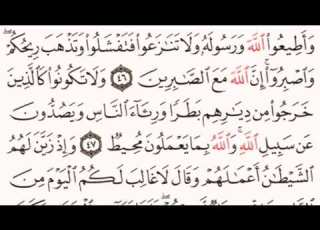 وَأَطِيعُوا۟ ٱللَّهَ وَرَسُولَهُۥ وَلَا تَنَٰزَعُوا۟ فَتَفْشَلُوا۟ وَتَذْهَبَ رِيحُكُمْ ۖ
وَٱصْبِرُوٓا۟ ۚ إِنَّ ٱللَّهَ مَعَ ٱلصَّٰبِرِينَ ٤٦ وَلَا تَكُونُوا۟ كَٱلَّذِينَ
خَرَجُوا۟ مِن دِيَٰرِهِم بَطَرًا وَرِئَآءَ ٱلنَّاسِ وَيَصُدُّونَ
عَن سَبِيلِ ٱللَّهِ ۚ وَٱللَّهُ بِمَا يَعْمَلُونَ مُحِيطٌ ٤٧ وَإِذْ زَيَّنَ لَهُمُ
ٱلشَّيْطَٰنُ أَعْمَٰلَهُمْ وَقَالَ لَا غَالِبَ لَكُمُ ٱلْيَوْمَ مِنَ